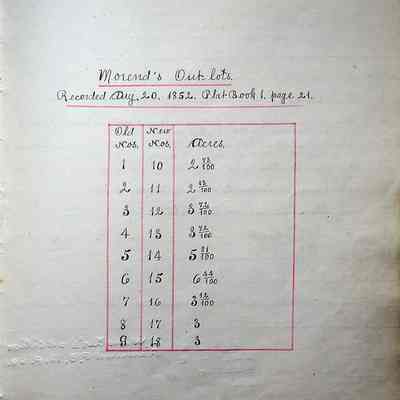 Morend's Out lots.
Recorded Aug. 20, 1852, Plat Book 1, page 21.
Old Nos. New Nos. Acres.
1 10 2
2 11 2
3 12 3
4 13 3
5 14 5
6 15 6 44/100
7 16 3 12/100
8 17 3
9 18 3